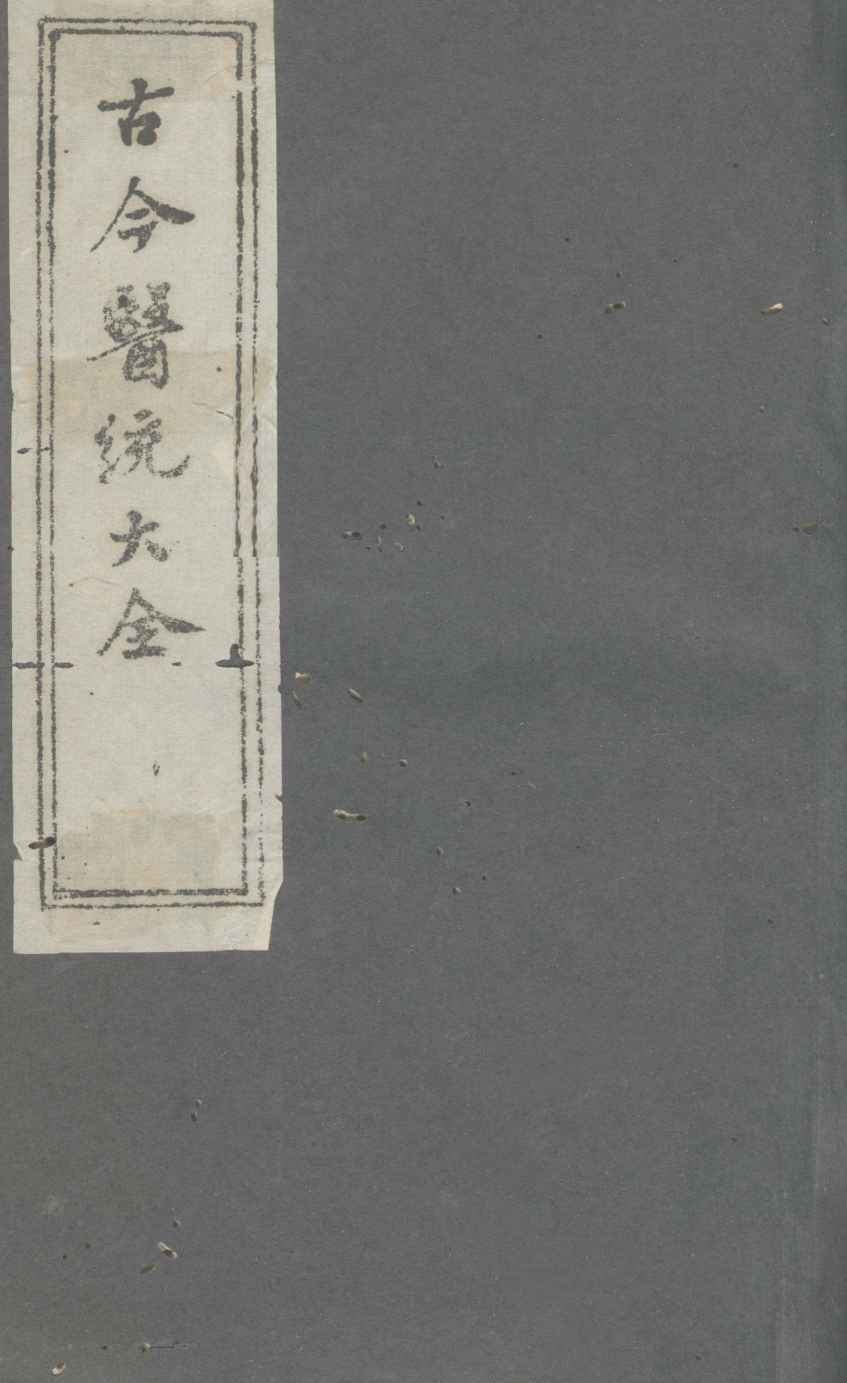 古今醫統大全